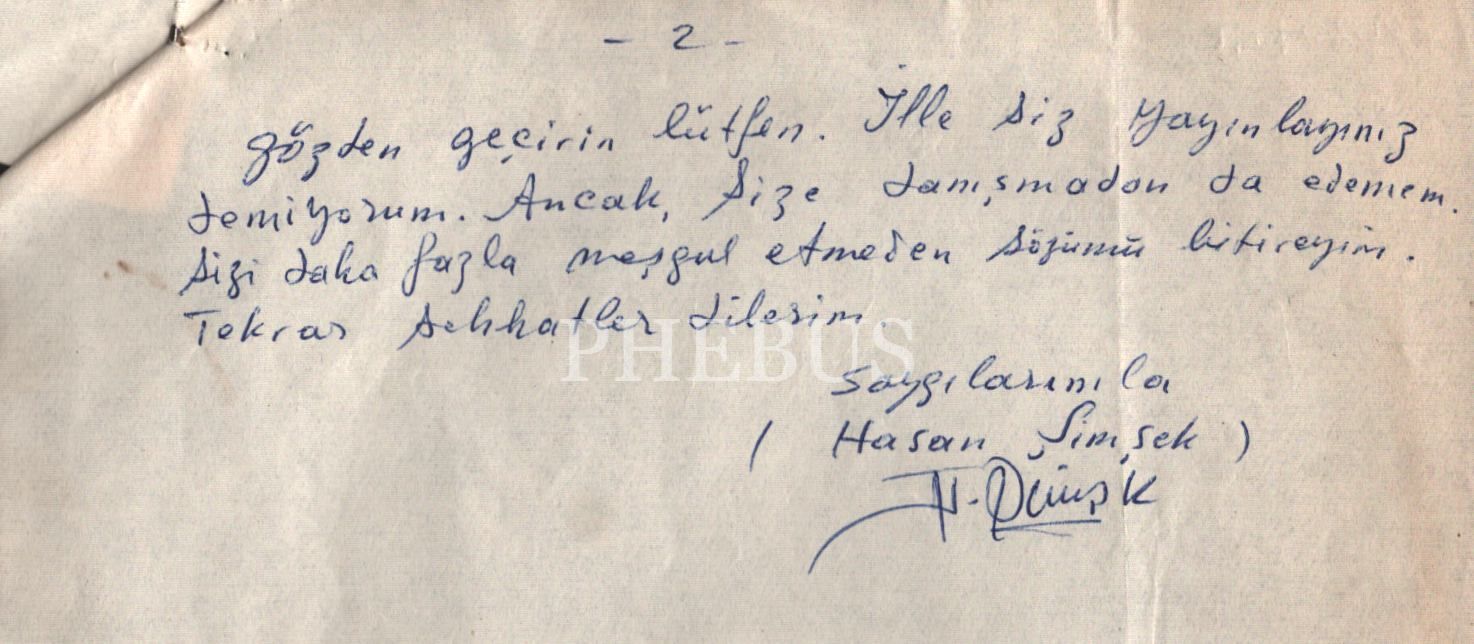 - 2 -
gözden geçirin lütfen. İlle siz yayınlayınız
demiyorum. Ancak, size danışmadan da edemem.
sizi daha fazla meşgul etmeden sözümü bitireyim.
Tekrar sıhhatler dilerim
PHEBUS
saygılarımla
( Hasan Şimşek )